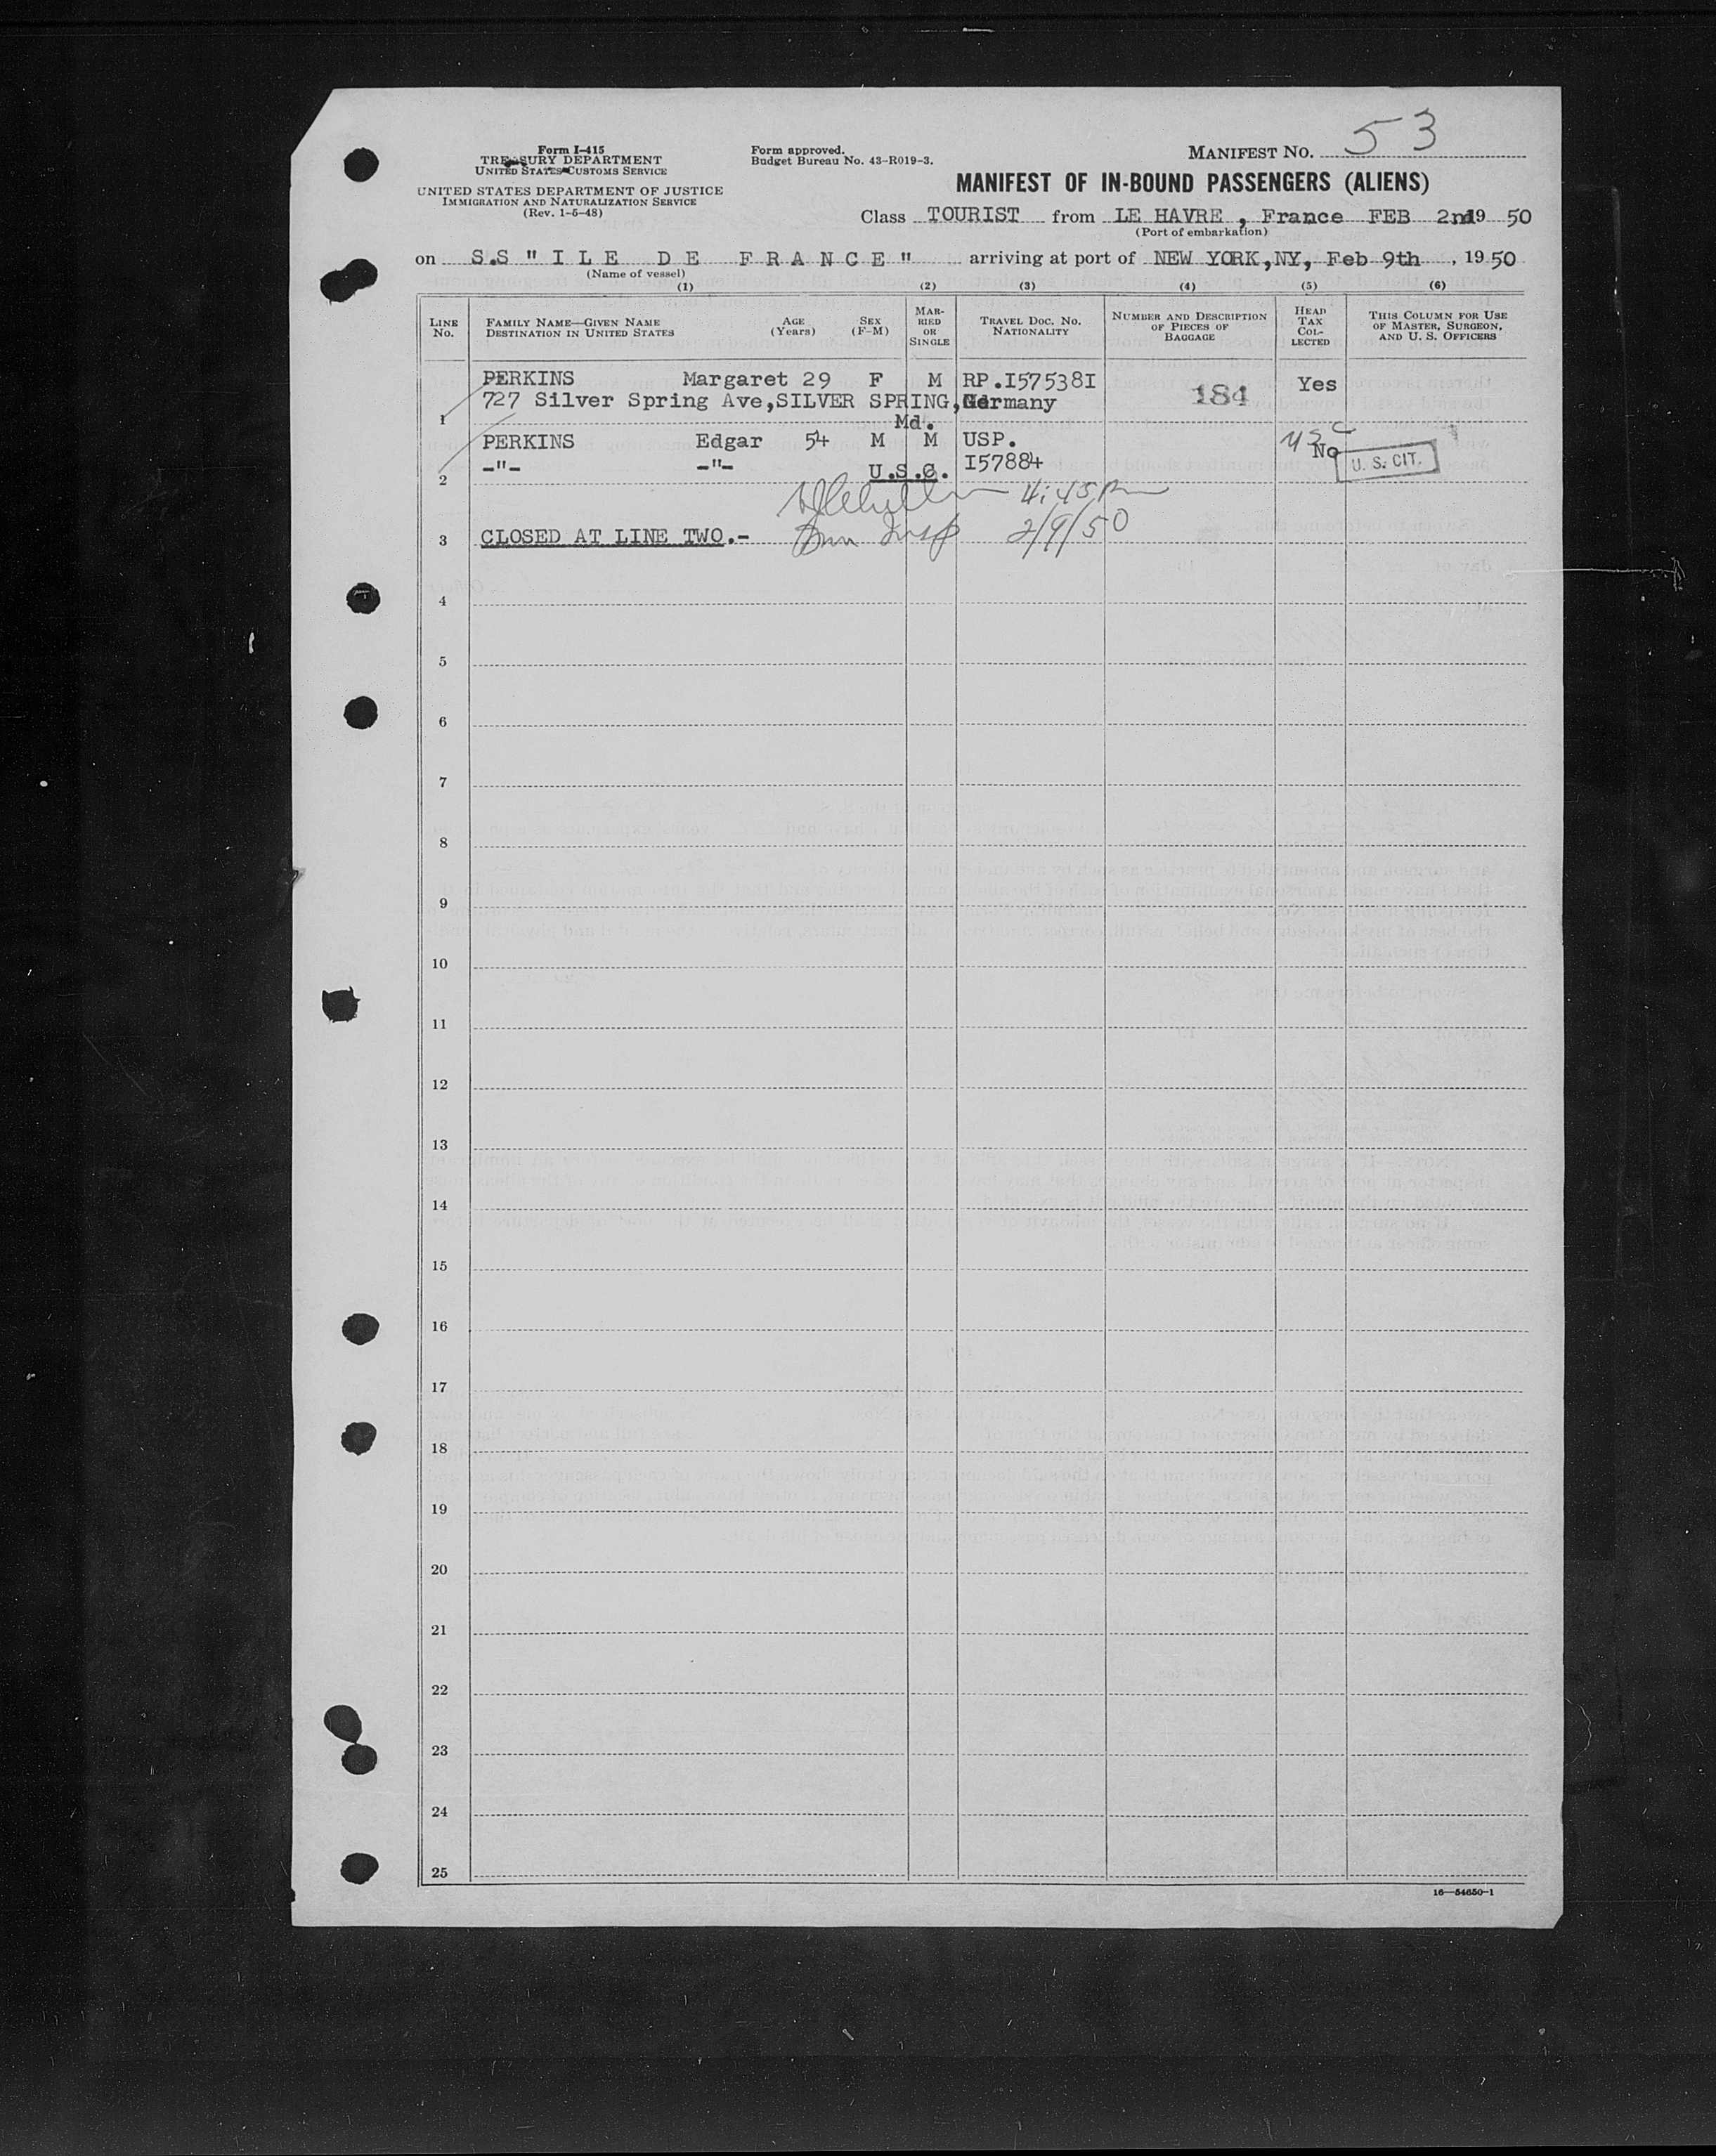 Form I-415
TREASURY DEPARTMENT
UNITED STATES CUSTOMS SERVICE
UNITED STATES DEPARTMENT OF JUSTICE
IMMIGRATION AND NATURALIZATION SERVICE
(Rev. 1-5-48)
Form approved.
Budget Bureau No. 43-R019-3.
MANIFEST NO. 53
MANIFEST OF IN-BOUND PASSENGERS (ALIENS)
Class TOURIST from LE HAVRE, France FEB 2nd 19 50
(Port of embarkation)
on S.S " I L E D E F R A N C E " arriving at port of NEW YORK, NY, Feb 9th, 19 50
(Name of vessel)
(1) (2) (3) (4) (5) (6)
LINE No. FAMILY NAME—GIVEN NAME DESTINATION IN UNITED STATES AGE (Years) SEX (F-M) MARRIED OR SINGLE TRAVEL DOC. NO. NATIONALITY NUMBER AND DESCRIPTION OF PIECES OF BAGGAGE HEAD TAX COLLECTED THIS COLUMN FOR USE OF MASTER, SURGEON, AND U. S. OFFICERS
PERKINS Margaret 29 F M RP.I57538I 184 Yes
727 Silver Spring Ave, SILVER SPRING, Germany
1 Md.
PERKINS Edgar 54 M M USP. USC No
-"- -"- U.S.C. I57884 U. S. CIT.
2
4:45 Pm
3 CLOSED AT LINE TWO.- Imm Insp 2/9/50
4
5
6
7
8
9
10
11
12
13
14
15
16
17
18
19
20
21
22
23
24
25
16—54650-1